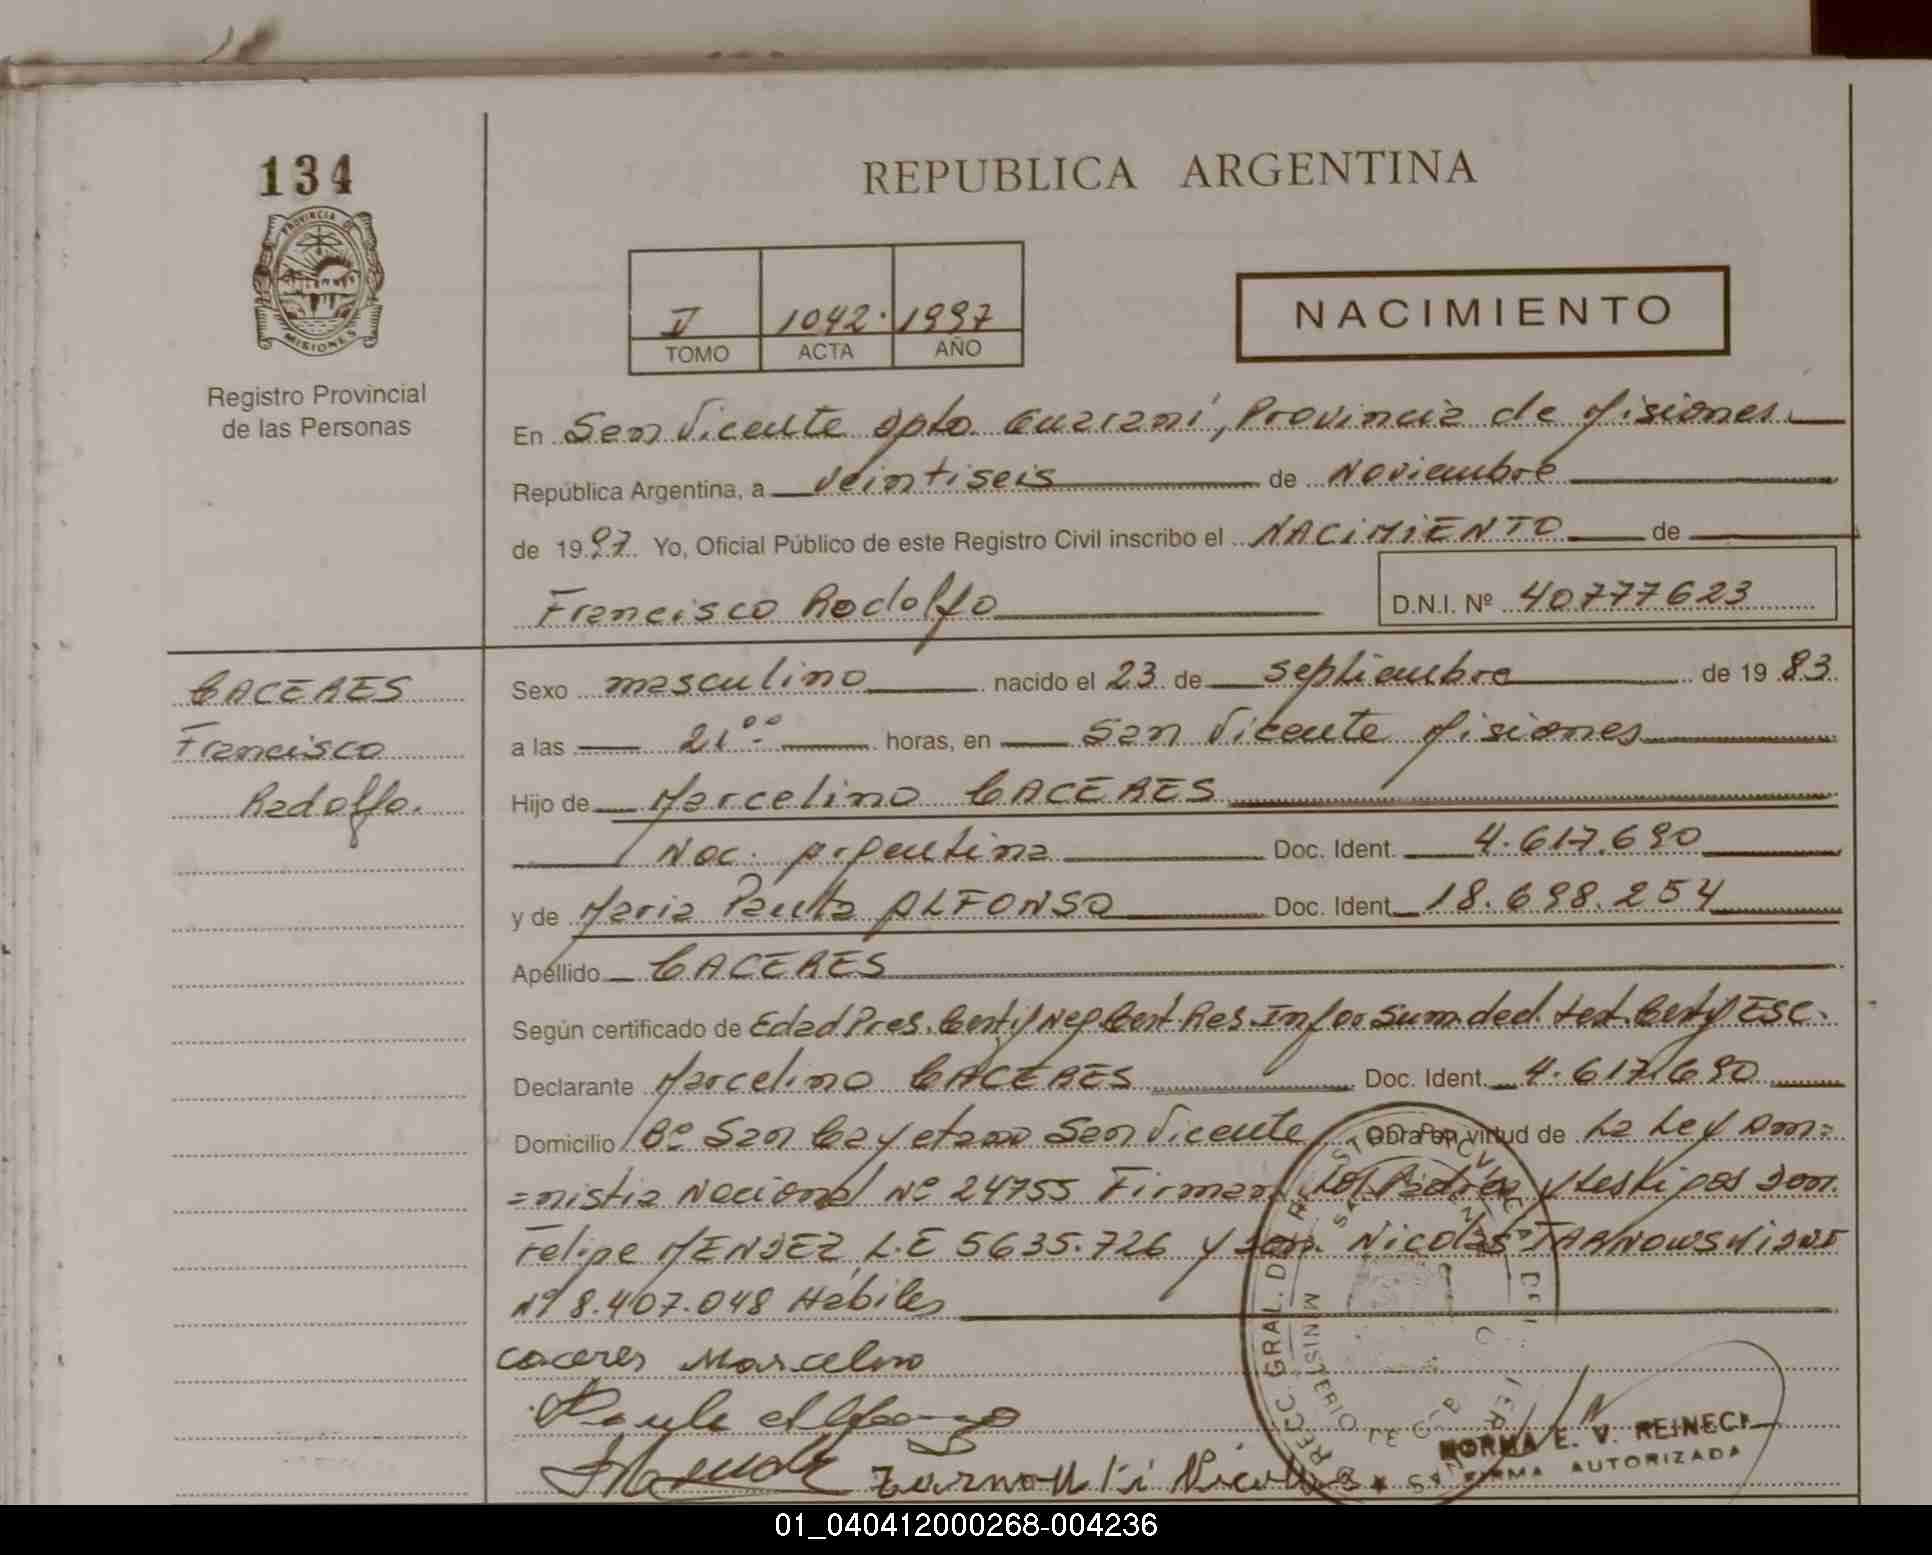 134
REPUBLICA ARGENTINA
PROVINCIA DE
MISIONES
Registro Provincial
de las Personas
II 1042. 1997
TOMO ACTA AÑO
NACIMIENTO
En San Vicente Dpto. Guarani, Provincia de Misiones.
República Argentina, a veintiseis de Noviembre
de 1997 Yo, Oficial Público de este Registro Civil inscribo el NACIMIENTO de
Francisco Rodolfo D.N.I. Nº 40777623
CACERES
Francisco
Rodolfo.
Sexo masculino nacido el 23 de septiembre de 1983.
a las 21°° horas, en San Vicente Misiones
Hijo de Marcelino CACERES
Nac. Argentina Doc. Ident. 4.617.690
y de Maria Paula ALFONSO Doc. Ident. 18.698.254
Apellido CACERES
Según certificado de Edad Pres. Certif Neg Cert Res. Infor Sum. ded. test. Certif ESC.
Declarante Marcelino CACERES Doc. Ident. 4.617.690
Domicilio Bº San Cayetano San Vicente Obra en virtud de La Ley Am=
=nistia Nacional Nº 24755 Firman los Padres y testigos Don.
Felipe MENDEZ, L.E 5635.726 y Don. Nicolas TARNOWSKI DNI
Nº 8.407.048 Hábiles
Caceres Marcelino
Paula Alfonzo
Tarnowski Nicolas
NORMA E. V. REINECK
FIRMA AUTORIZADA
01_040412000268-004236